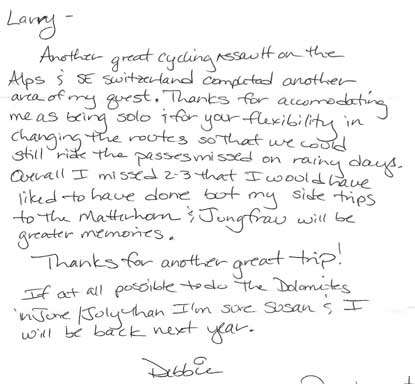 Larry -
Another great cycling assault on the
Alps & SE Switzerland completed another
area of my quest. Thanks for accomodating
me as being solo & for your flexibility in
changing the routes so that we could
still ride the passes missed on rainy days.
Overall I missed 2-3 that I would have
liked to have done but my side trips
to the Matterhorn & Jungfrau will be
greater memories.
Thanks for another great trip!
If at all possible to do the Dolomites
in June/July than I'm sure Susan & I
will be back next year.
Debbie